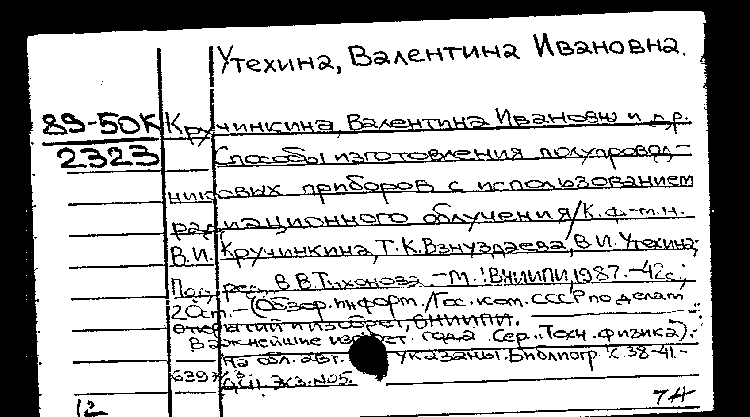 Утехина, Валентина Ивановна.
89-50К Кручинкина, Валентина Ивановна и др.
2323 Способы изготовления полупровод-
никовых приборов с использованием
радиационного облучения/К.ф.-м.н.
В.И. Кручинкина, Т.К. Взнуздаева, В.И. Утехина;
Под ред. В.В. Тихонова -М.: ВНИИПИ, 1987.-42с;
20см.-(Обзор.информ./Гос.ком.СССР по делам
открытий и изобрет, ВНИИПИ.
Важнейшие изобрет. года Сер.: Техн. физика).-
На обл. авт. указаны. Библиогр с.38-41.-
639 ЭКЗ.
12 7А